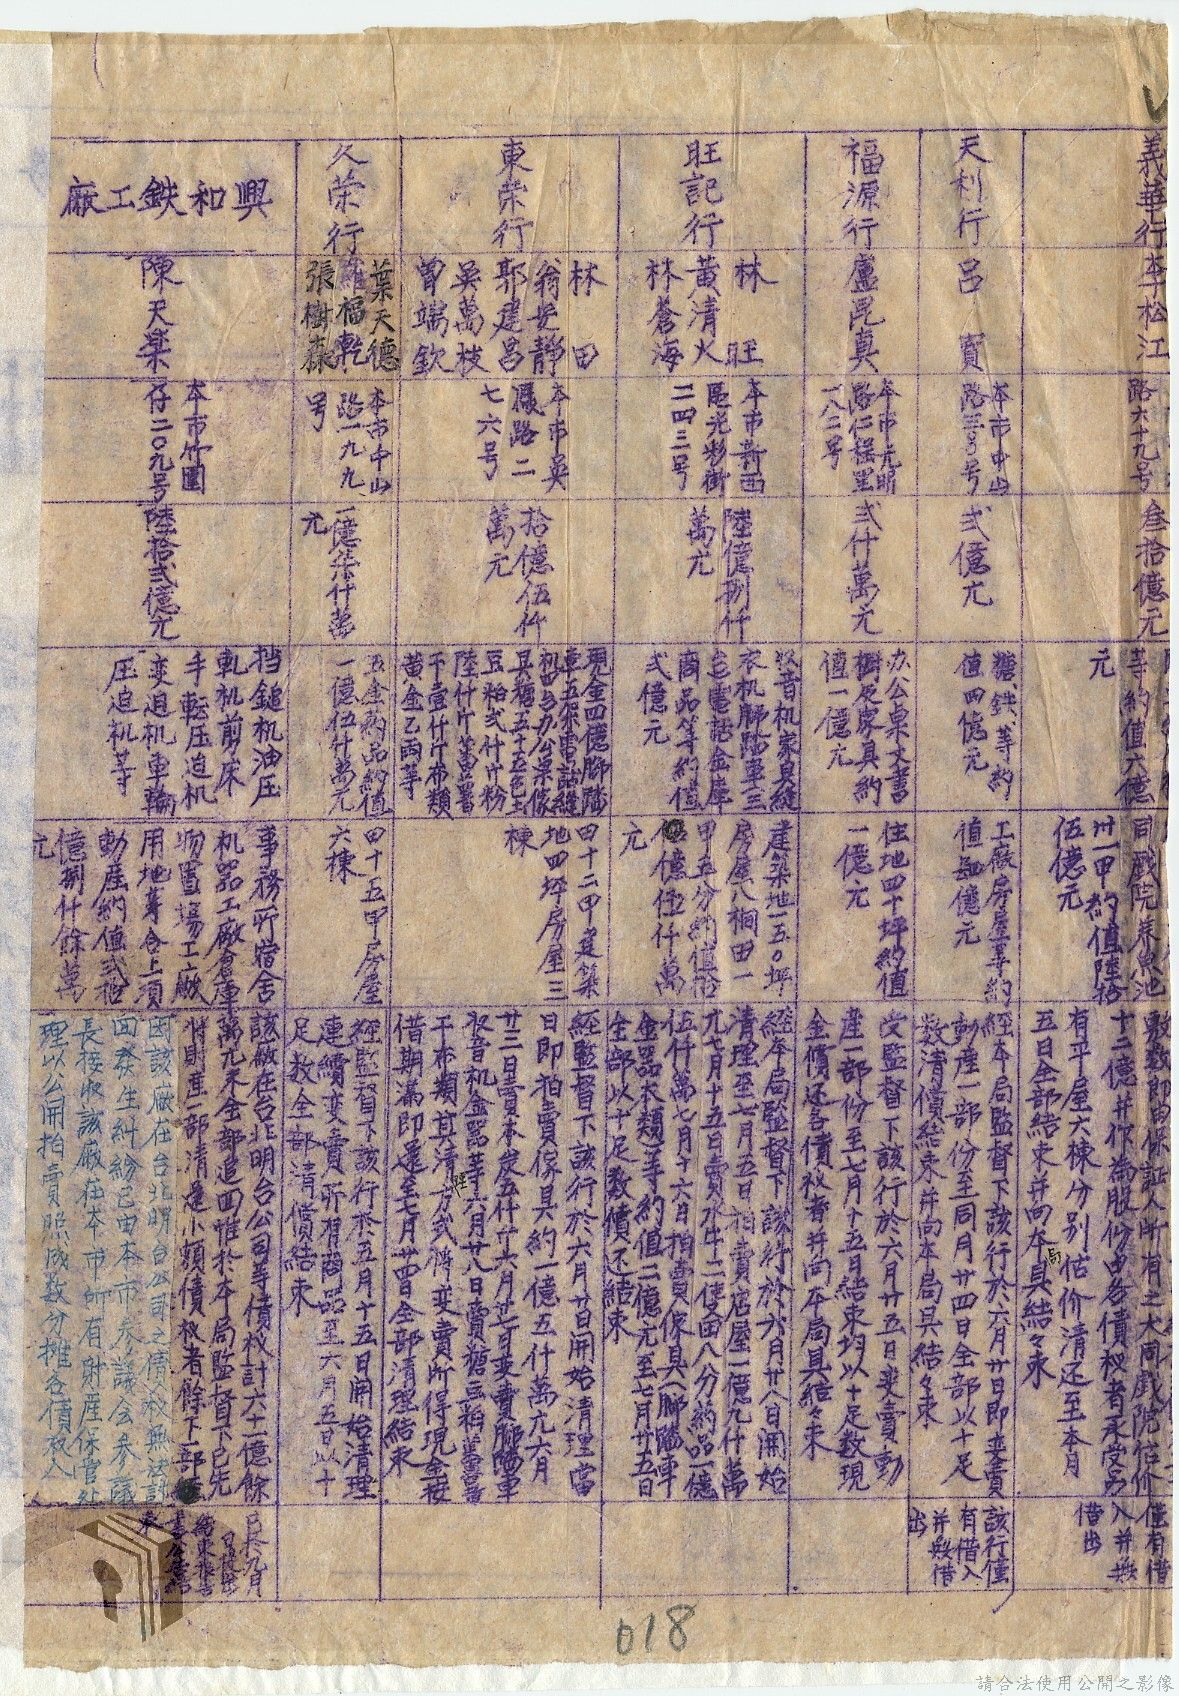 義華行
李松江
路六十九号
叁拾億元
等約值六億
元
同戲院養魚池
卅一甲約值陸拾
伍億元
敷数即由保証人所有之大同戲院估价
十二億并作為股份由各債权者承受另
有平屋六棟分別估价清还至本月
五日全部結束并向本局具結々束
僅有借
入并無
借出
天利行
呂寶
本市中山
路三号
弍億元
糖、鉄、等約
值四億元
工廠房屋等約
值壹億元
經本局監督下該行於六月廿日即变賣
動產一部份至同月廿四日全部以十足
数清償結束并向本局具結々束
該行僅
有借入
并無借
出
福源行
盧昆真
本市光明
路仁程里
一八二号
弍什萬元
办公桌文書
櫥及家具約
值一億元
住地四十坪約值
一億元
受監督下該行於六月廿五日变賣動
產一部份至七月十五日結束均以十足数現
金償还各債权者并向本局具結々束
旺記行
林旺
黃清火
林蒼海
本市新西
區光彩街
二四三号
陸億捌仟
萬元
收音机家具縫
衣机腳踏車三
台電話金庫
商品等約值
弍億元
建築地一五〇坪
房屋八棟田一
甲五分約值拾
億伍仟萬
元
經本局監督下該行於六月廿八日開始
清理至七月五日拍賣店屋一億九什萬
元七月十五日賣水牛二隻田八分約品一億
伍仟萬七月十六日拍賣傢具(腳踏車
金器衣類)等約值二億元至七月廿五日
全部以十足数償还結束
東荣行
林田
翁安靜
郭建昌
吳萬枝
曾端欽
本市吳
鳳路二
七六号
拾億伍仟
萬元
現金四億腳踏
車五架電話縫
机四台办公桌傢
具糖五十五包玉
豆粕弍什斤粉
陸什斤蕃薯
干壹什斤布類
黃金乙両等
四十二甲建築
地四坪房屋三
棟
經監督下該行於六月廿日開始清理當
日即拍賣傢具約一億五什萬元六月
廿三日賣木炭五仟斤六月廿四日变賣腳踏車
收音机金器等六月廿八日賣糖豆粕蕃薯
干布類其清理方式将变賣所得現金按
借期滿即還至七月廿四日全部清理結束
久荣行
葉天德
羅福乾
張樹森
本市中山
路一九九
号
一億柒什萬
元
五金葯品約值
一億伍什萬元
四十五甲房屋
六棟
經監督下該行於五月十五日開始清理
連續变賣所有商品至六月五日以十
足数全部清償結束
興和鉄工廠
陳天樂
本市竹圍
仔二〇九号
陸拾弍億元
挡鎚机油压
軋机前床
手転压迫机
变迫机車輪
压迫机等
事務所宿舍
机器工廠倉庫
物置場工廠
用地等合上項
動產約值弍拾
億捌什餘萬
元
該廠在台北明台公司等債权計六十一億餘
萬元未全部追回惟於本局監督下已先
将財產一部清還小額債权者餘下一部
因該廠在台北明台公司之債权無法討
回發生糾紛已由本市參議会參議
長接收該廠在本市所有財產保管処
理以公開拍賣照成数分攤各債权人
已於九月
018
請合法使用公開之影像